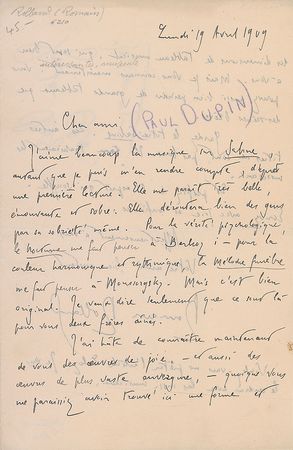 Rolland (Romain)
45 -
Lundi 19 Avril 1909
Cher ami (Paul DUPIN)
J'aime beaucoup la musique sur Sabine,
autant que je puis m'en rendre compte d'après
une première lecture. Elle me paraît très belle,
émouvante et sobre. Elle déroutera bien des gens
par sa sobriété même. Pour la vérité psychologique,
le Nocturne me fait penser à Berlioz ; - pour la
couleur harmonique et rythmique, la Mélodie funèbre
me fait penser à Moussorgsky. Mais c'est bien
original. Je veux dire seulement que ce sont là
pour vous deux frères aînés.
J'ai hâte de connaître maintenant
de vous des œuvres de joie, - et aussi des
œuvres de plus vaste envergure, - quoique vous
me paraissiez avoir trouvé ici une forme et